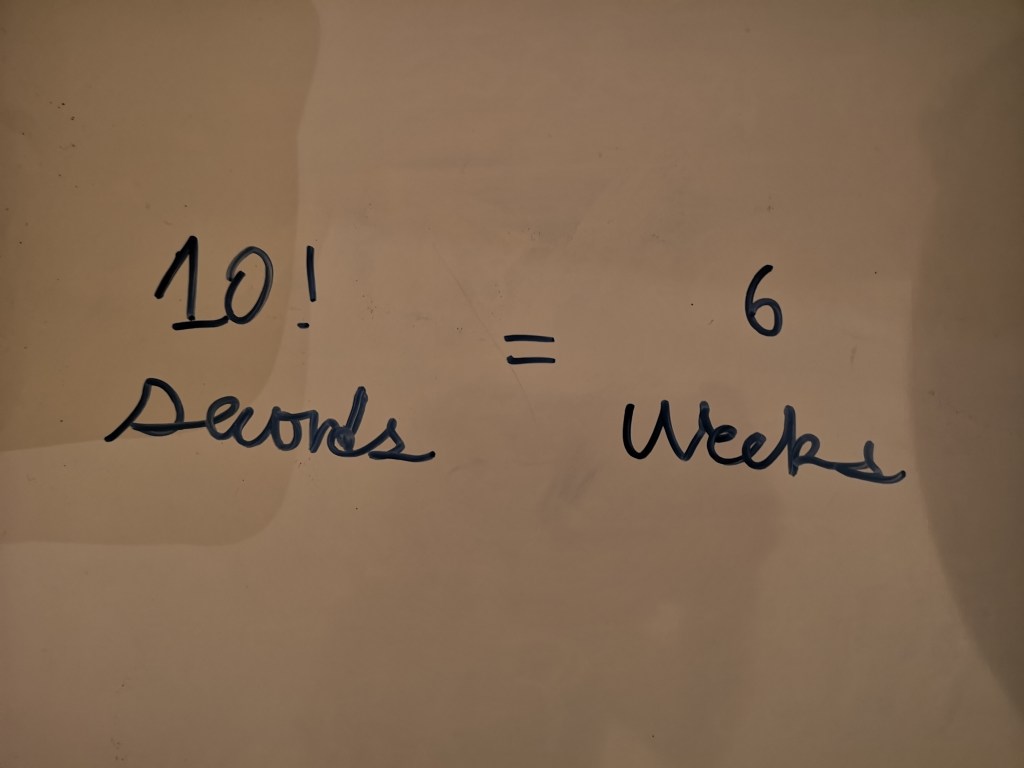 10! = 6
seconds weeks